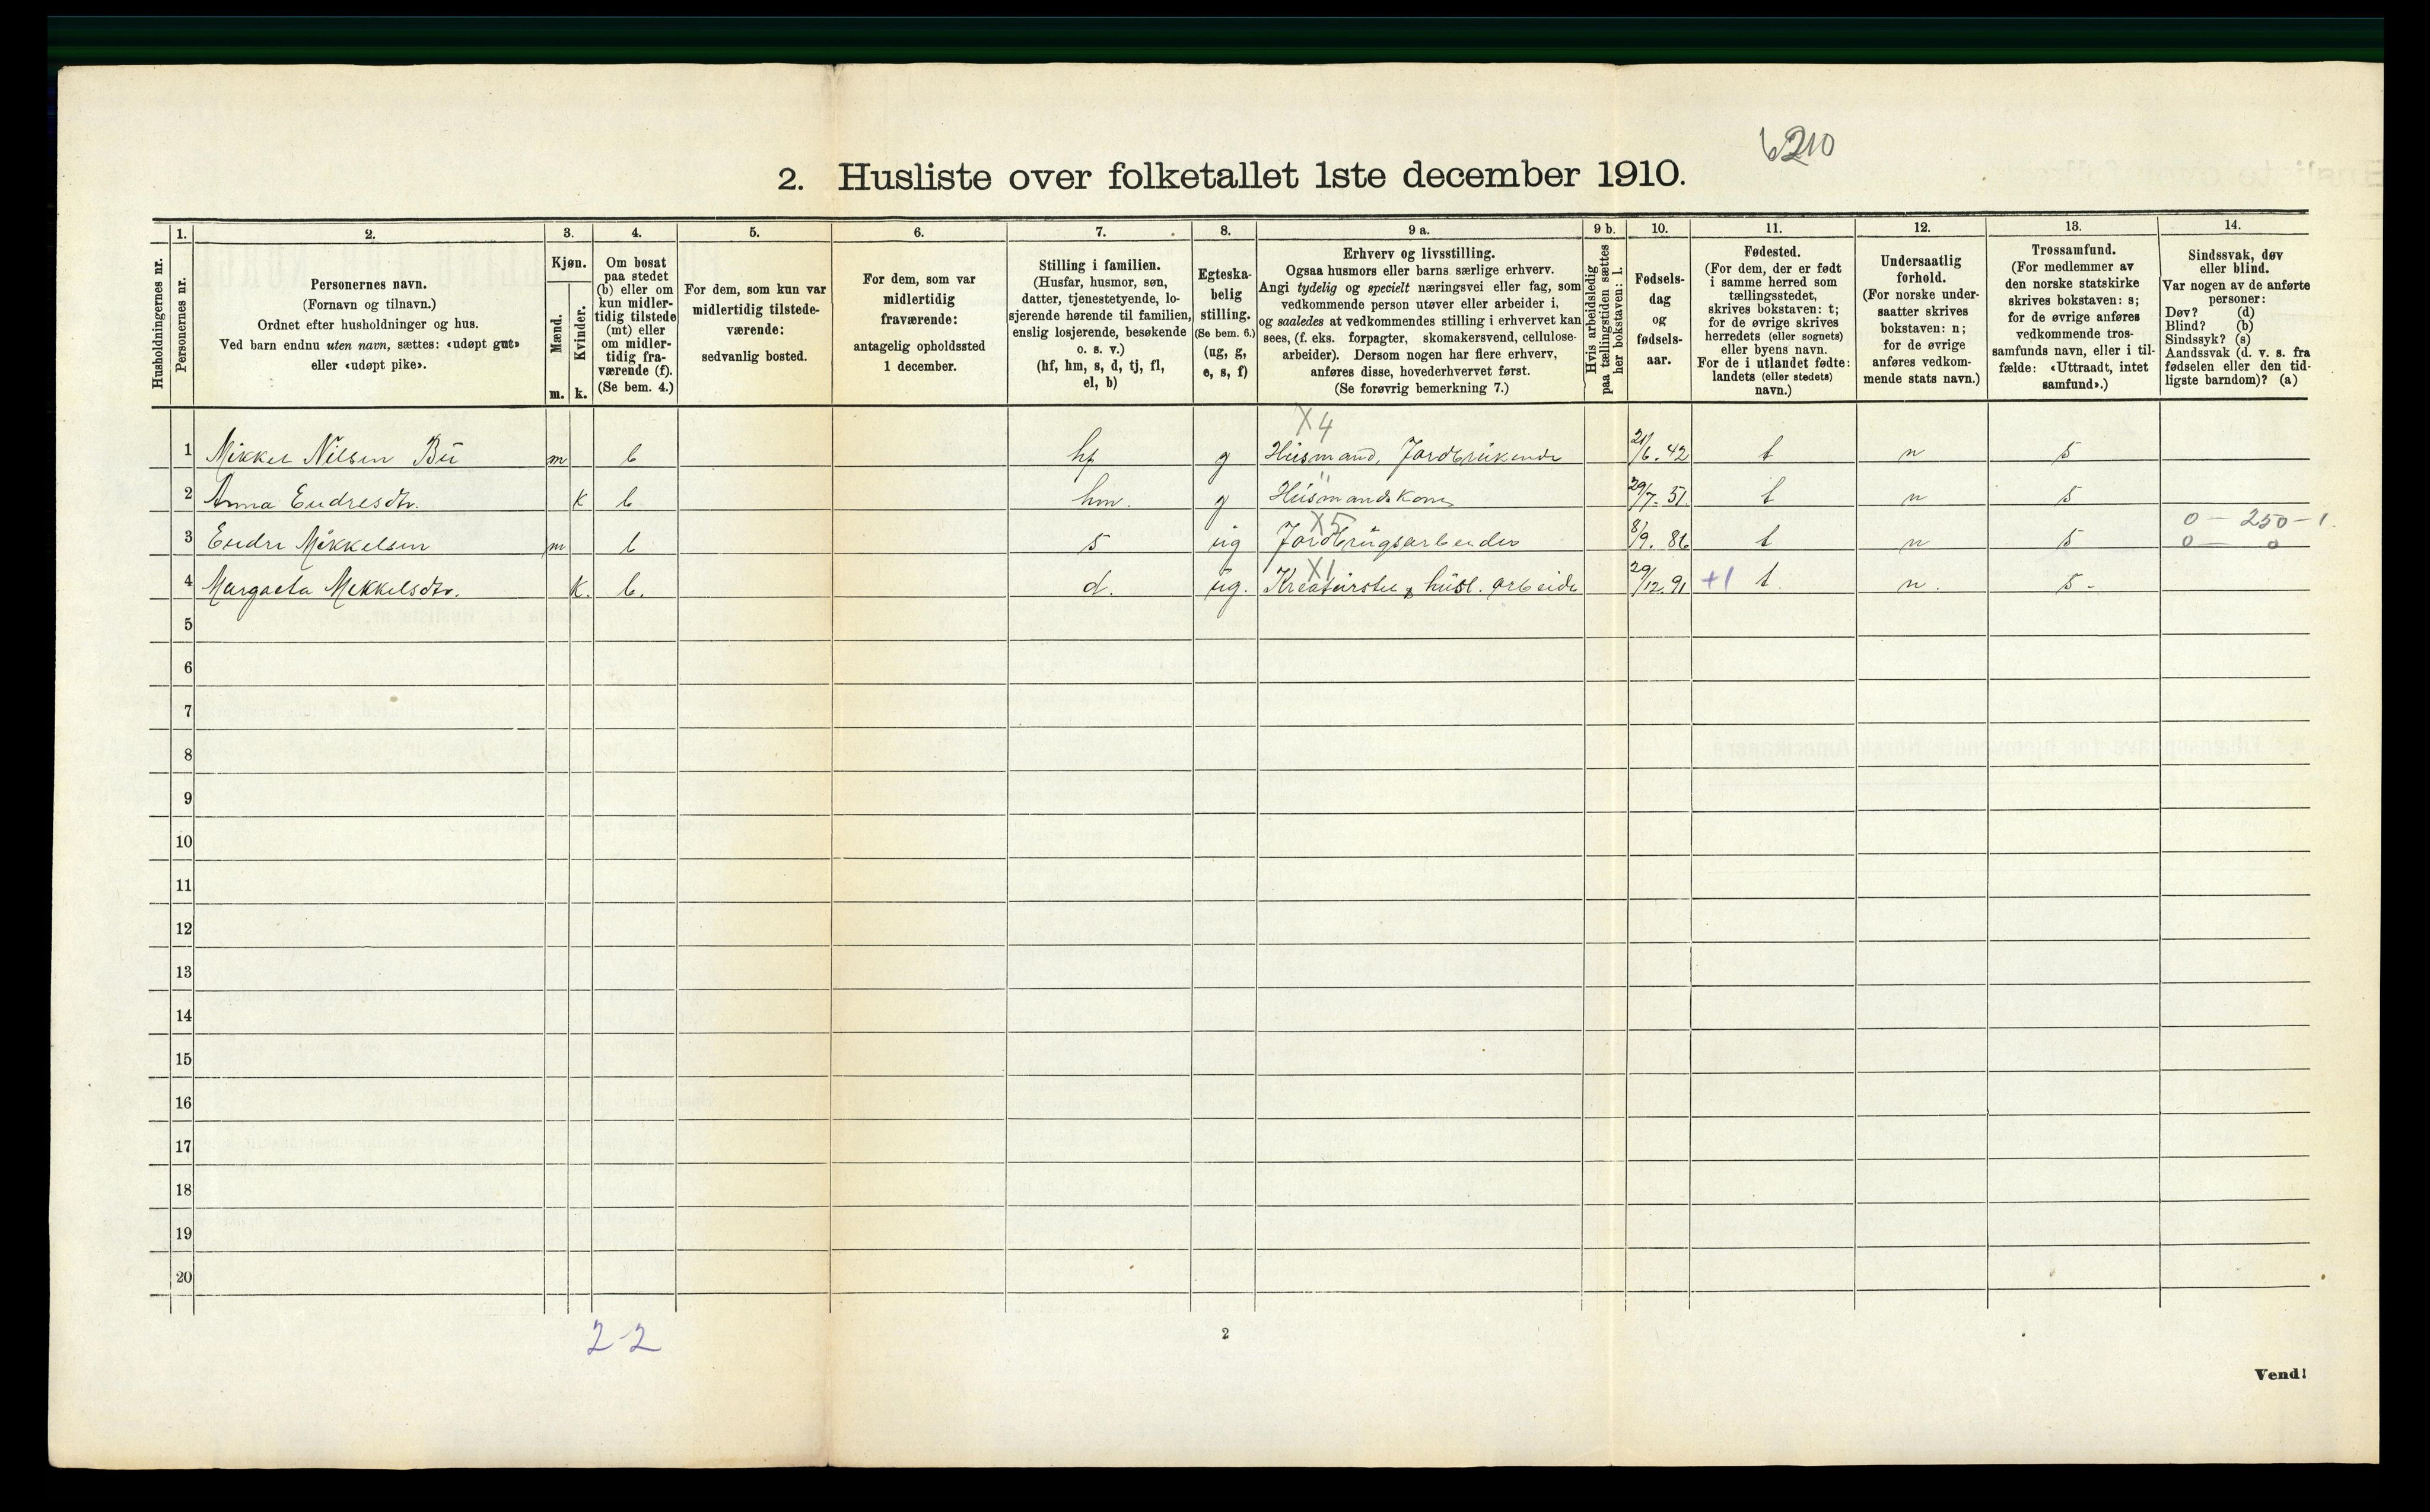 6210
2. Husliste over folketallet 1ste december 1910.
Husholdningernes nr.
1. Personernes nr.
2. Personernes navn.
(Fornavn og tilnavn.)
Ordnet efter husholdninger og hus.
Ved barn endnu uten navn, sættes: «udøpt gut»
eller «udøpt pike».
3. Kjøn.
Mænd. m.
Kvinder. k.
4. Om bosat
paa stedet
(b) eller om
kun midler-
tidig tilstede
(mt) eller
om midler-
tidig fra-
værende (f).
(Se bem. 4.)
5. For dem, som kun var
midlertidig tilstede-
værende:
sedvanlig bosted.
6. For dem, som var
midlertidig
fraværende:
antagelig opholdssted
1 december.
7. Stilling i familien.
(Husfar, husmor, søn,
datter, tjenestetyende, lo-
sjerende hørende til familien,
enslig losjerende, besøkende
o. s. v.)
(hf, hm, s, d, tj, fl,
el, b)
8. Egteska-
belig
stilling.
(Se bem. 6.)
(ug, g,
e, s, f)
9 a. Erhverv og livsstilling.
Ogsaa husmors eller barns særlige erhverv.
Angi tydelig og specielt næringsvei eller fag, som
vedkommende person utøver eller arbeider i,
og saaledes at vedkommendes stilling i erhvervet kan
sees, (f. eks. forpagter, skomakersvend, cellulose-
arbeider). Dersom nogen har flere erhverv,
anføres disse, hovederhvervet først.
(Se forøvrig bemerkning 7.)
9 b. Hvis arbeidsledig
paa tællingstiden sættes
her bokstaven: l.
10. Fødsels-
dag
og
fødsels-
aar.
11. Fødested.
(For dem, der er født
i samme herred som
tællingsstedet,
skrives bokstaven: t;
for de øvrige skrives
herredets (eller sognets)
eller byens navn.
For de i utlandet fødte:
landets (eller stedets)
navn.)
12. Undersaatlig
forhold.
(For norske under-
saatter skrives
bokstaven: n;
for de øvrige
anføres vedkom-
mende stats navn.)
13. Trossamfund.
(For medlemmer av
den norske statskirke
skrives bokstaven: s;
for de øvrige anføres
vedkommende tros-
samfunds navn, eller i til-
fælde: «Uttraadt, intet
samfund».)
14. Sindssvak, døv
eller blind.
Var nogen av de anførte
personer:
Døv? (d)
Blind? (b)
Sindssyk? (s)
Aandssvak (d. v. s. fra
fødselen eller den tid-
ligste barndom)? (a)
X4
1 Mikkel Nilsen Bü m b hf g Hüsmand, Jordbrükende 21/6. 42 t n s
2 Anna Endresdtr. k b hm. g Hüsmandskone 29/7. 51 t n s
X5 0 - 250 - 1
3 Endre Mikkelsen m b s üg Jordbrügsarbeider 8/9. 86 t n s 0 - 0
X1
4 Margreta Mikkelsdtr. k. b. d. üg. Kreatürstel & hüsl. arbeide 29/12. 91 +1 t. n. s -
5
6
7
8
9
10
11
12
13
14
15
16
17
18
19
20
2-2
2
Vend!